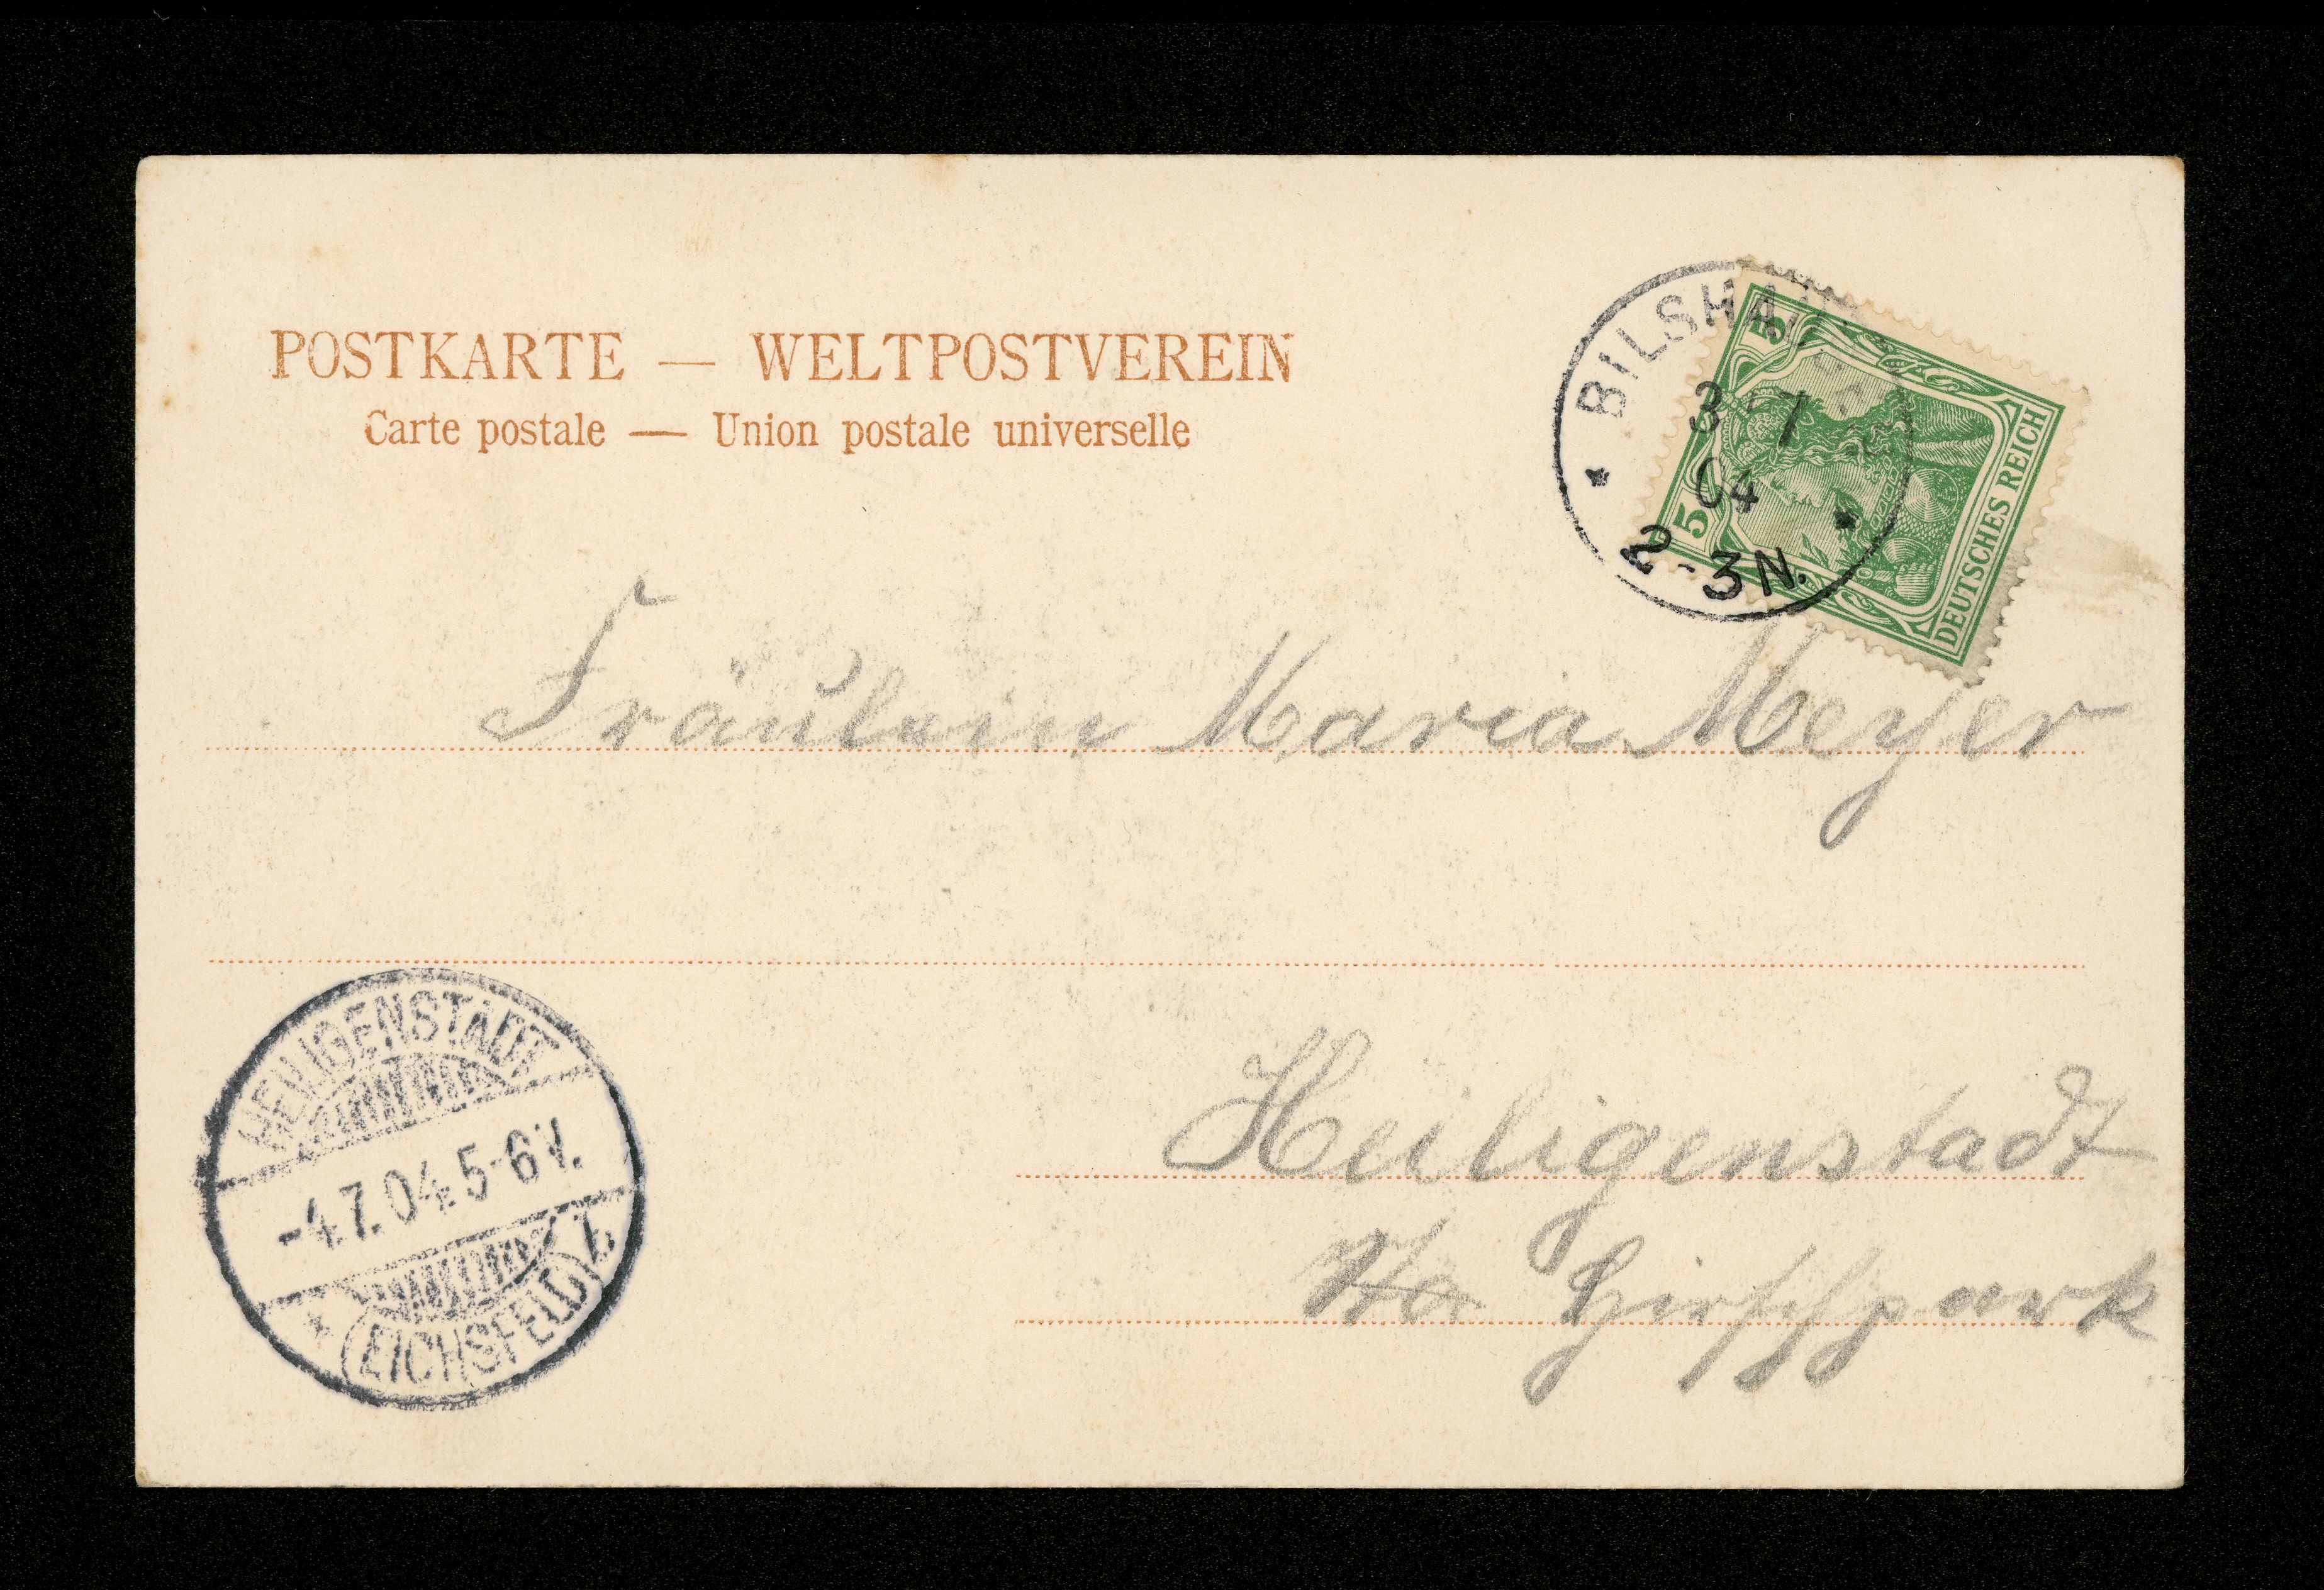 POSTKARTE — WELTPOSTVEREIN
Carte postale — Union postale universelle
* BILSHAUSEN *
3 - 7
04
2-3N.
5
5
DEUTSCHES REICH
Fräulein Maria Meyer
Heiligenstadt
Hirschpark
HEILIGENSTADT
-4.7.04.5-6V.
* (EICHSFELD) *